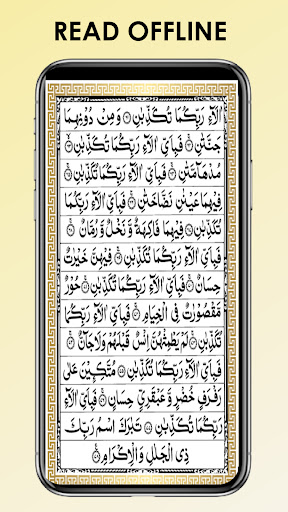 READ OFFLINE
اٰلَآءِ رَبِّكُمَا تُكَذِّبٰنِ ۝ وَمِنْ دُوْنِهِمَا
جَنَّتٰنِ ۝ فَبِاَيِّ اٰلَآءِ رَبِّكُمَا تُكَذِّبٰنِ ۝
مُدْهَآمَّتٰنِ ۝ فَبِاَيِّ اٰلَآءِ رَبِّكُمَا تُكَذِّبٰنِ ۝
فِيْهِمَا عَيْنٰنِ نَضَّاخَتٰنِ ۝ فَبِاَيِّ اٰلَآءِ رَبِّكُمَا
تُكَذِّبٰنِ ۝ فِيْهِمَا فَاكِهَةٌ وَّنَخْلٌ وَّرُمَّانٌ ۝
فَبِاَيِّ اٰلَآءِ رَبِّكُمَا تُكَذِّبٰنِ ۝ فِيْهِنَّ خَيْرٰتٌ
حِسَانٌ ۝ فَبِاَيِّ اٰلَآءِ رَبِّكُمَا تُكَذِّبٰنِ ۝ حُوْرٌ
مَّقْصُوْرٰتٌ فِى الْخِيَامِ ۝ فَبِاَيِّ اٰلَآءِ رَبِّكُمَا
تُكَذِّبٰنِ ۝ لَمْ يَطْمِثْهُنَّ اِنْسٌ قَبْلَهُمْ وَلَاجَآنٌّ ۝
فَبِاَيِّ اٰلَآءِ رَبِّكُمَا تُكَذِّبٰنِ ۝ مُتَّكِـِٕيْنَ عَلٰى
رَفْرَفٍ خُضْرٍ وَّعَبْقَرِيٍّ حِسَانٍ ۝ فَبِاَيِّ اٰلَآءِ
رَبِّكُمَا تُكَذِّبٰنِ ۝ تَبٰرَكَ اسْمُ رَبِّكَ
ذِى الْجَلٰلِ وَالْاِكْرَامِ ۝